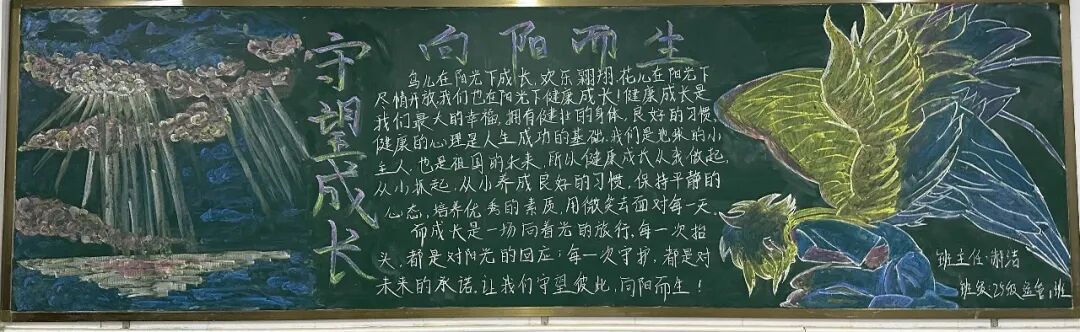 守望成长
向阳而生
鸟儿在阳光下成长,欢乐翱翔,花儿在阳光下
尽情开放,我们也在阳光下健康成长!健康成长是
我们最大的幸福,拥有健壮的身体,良好的习惯,
健康的心理是人生成功的基础,我们是地球的小
主人,也是祖国的未来,所以健康成长从我做起,
从小抓起,从小养成良好的习惯,保持平静的
心态,培养优秀的素质,用微笑去面对每一天,
而成长是一场向着光的旅行,每一次抬
头,都是对阳光的回应;每一次守护,都是对
未来的承诺,让我们守望彼此,向阳而生!
班主任:谢洁
班级:25级